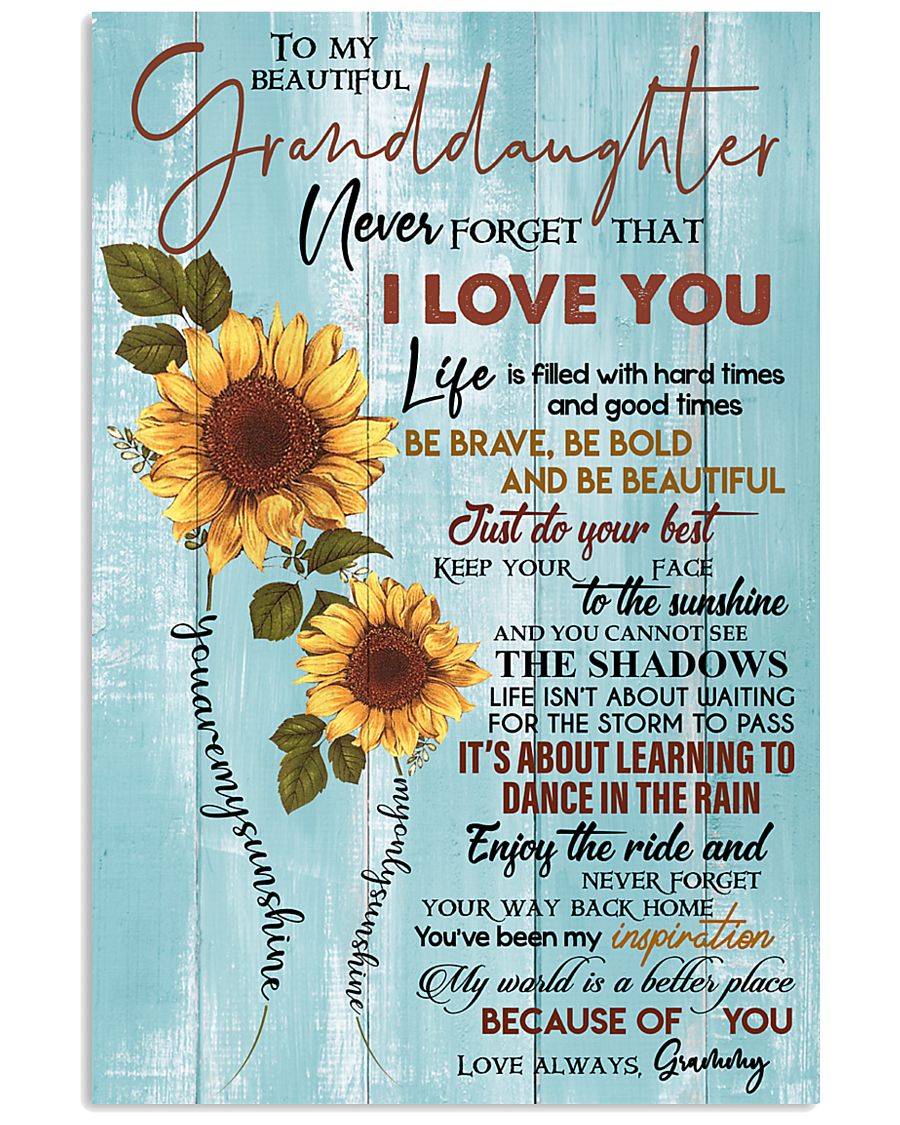 To my
beautiful
Granddaughter
Never forget that
I LOVE YOU
Life is filled with hard times
and good times
BE BRAVE, BE BOLD
AND BE BEAUTIFUL
Just do your best
Keep your face
to the sunshine
and you cannot see
THE SHADOWS
LIFE ISN'T ABOUT WAITING
FOR THE STORM TO PASS
IT'S ABOUT LEARNING TO
DANCE IN THE RAIN
Enjoy the ride and
never forget
your way back home
You've been my inspiration
My world is a better place
BECAUSE OF YOU
Love always, Grammy
youaremysunshine
myonlysunshine